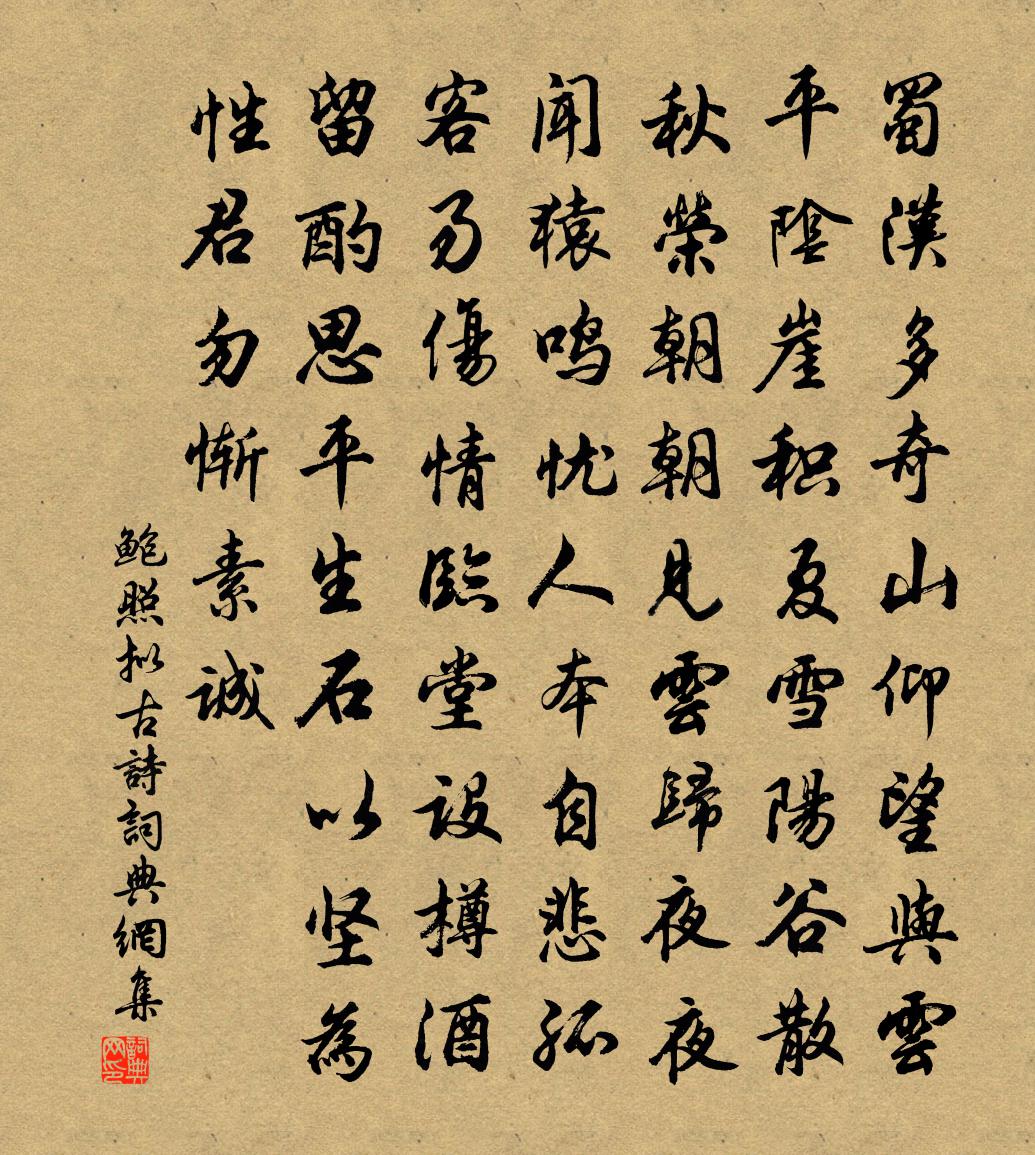 蜀漢多奇山仰望與雲
平陰崖积夏雪陽谷散
秋榮朝朝見雲歸夜夜
聞猿鸣忧人本自悲孤
客易傷情臨堂設樽酒
留酌思平生石以坚為
性君勿惭素誠
鲍照拟古詩詞典網集
詞典网印